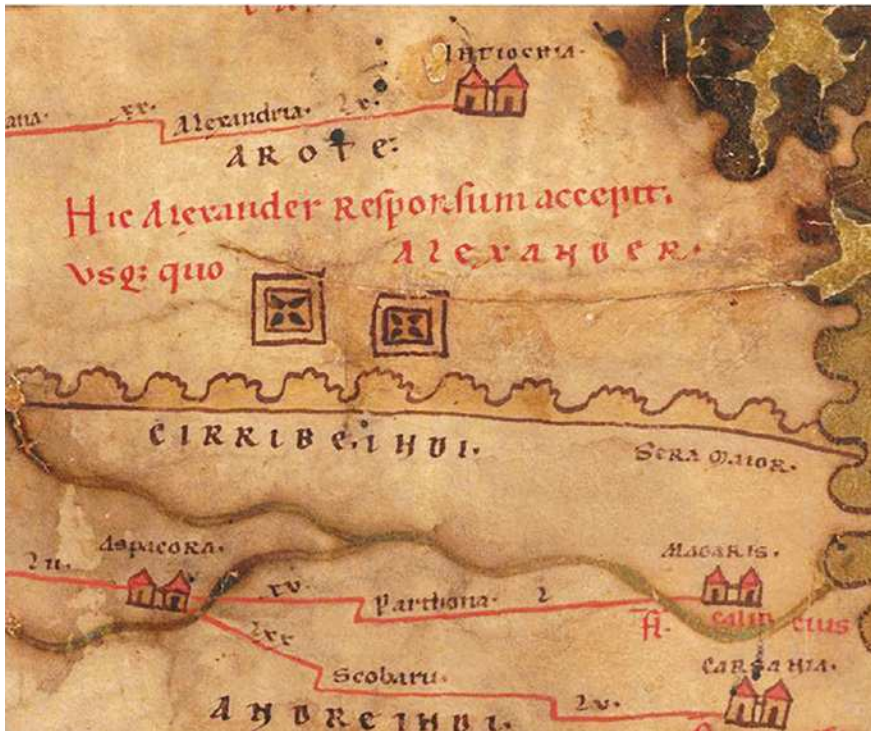 ANTIOCHIA.
ana. xv. Alexandria. lv.
AROTE:
Hic Alexander Responsum accepit.
vsq; quo ALEXANDER.
CIRRIBE.INDI.
SERA MAIOR.
Aspacora. Magaris.
xv. Parthona. l
fl. calin cius
lxx
Scobaru. CARSANIA.
ANDREINDI. lv.